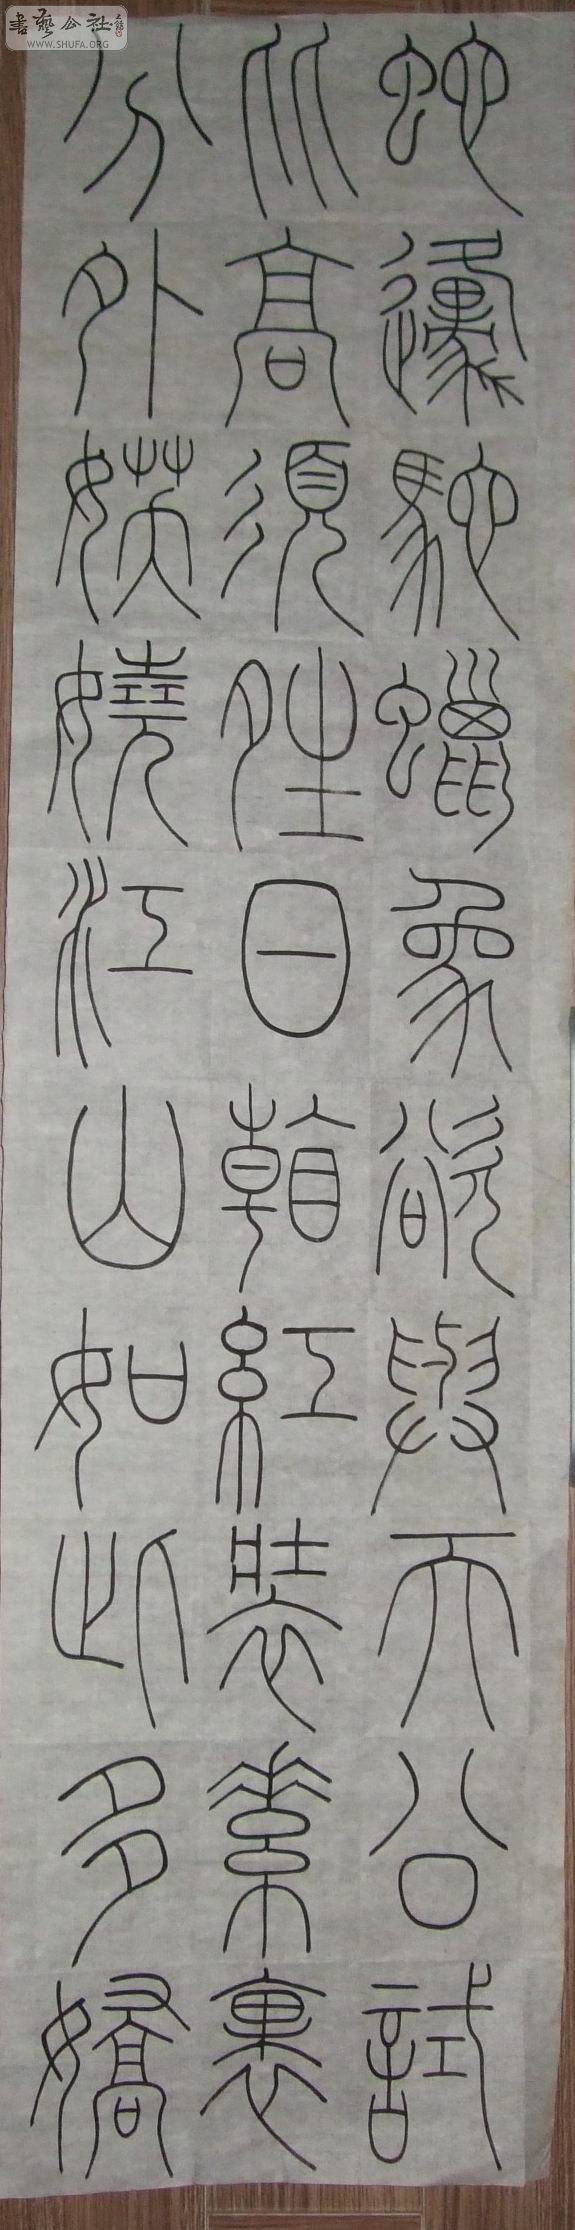 書藝公社
WWW.SHUFA.ORG
蛇邍馳蠟象欲與天公試
比高須夝日看紅裝素裹
分外妖嬈江山如此多嬌